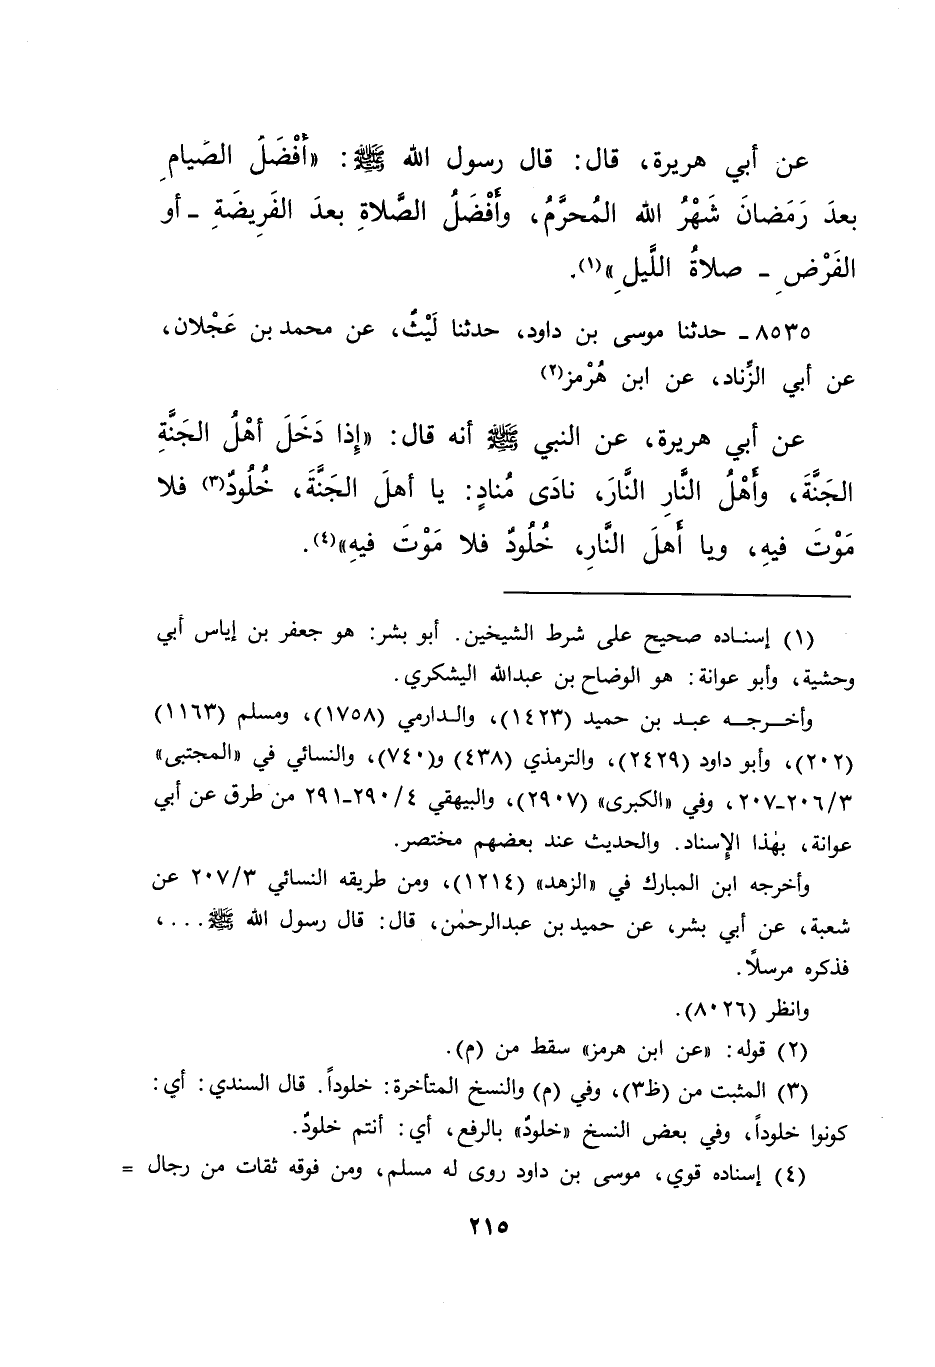 عن أبي هريرة، قال: قال رسول الله ﷺ: «أَفْضَلُ الصِّيامِ
بعدَ رَمَضانَ شَهْرُ الله المُحرَّمُ، وأَفْضَلُ الصَّلاةِ بعدَ الفَرِيضَةِ ـ أو
الفَرْضِ ـ صلاةُ اللَّيلِ»(١).
٨٥٣٥ـ حدثنا موسى بن داود، حدثنا لَيْثٌ، عن محمد بن عَجْلان،
عن أبي الزِّناد، عن ابن هُرْمز(٢)
عن أبي هريرة، عن النبي ﷺ أنه قال: «إِذا دَخَلَ أهْلُ الجَنَّةِ
الجَنَّةَ، وأَهْلُ النَّارِ النَّارَ، نادَى مُنادٍ: يا أهلَ الجَنَّة، خُلُودٌ(٣) فلا
مَوْتَ فيهِ، ويا أَهلَ النَّارِ، خُلُودٌ فلا مَوْتَ فيهِ»(٤).
(١) إسناده صحيح على شرط الشيخين. أبو بشر: هو جعفر بن إياس أبي
وحشية، وأبو عوانة: هو الوضاح بن عبدالله اليشكري.
وأخرجه عبد بن حميد (١٤٢٣)، والدارمي (١٧٥٨)، ومسلم (١١٦٣)
(٢٠٢)، وأبو داود (٢٤٢٩)، والترمذي (٤٣٨) و(٧٤٠)، والنسائي في «المجتبى»
٣/٢٠٦ـ٢٠٧، وفي «الكبرى» (٢٩٠٧)، والبيهقي ٤/٢٩٠ـ٢٩١ من طرق عن أبي
عوانة، بهٰذا الإِسناد. والحديث عند بعضهم مختصر.
وأخرجه ابن المبارك في «الزهد» (١٢١٤)، ومن طريقه النسائي ٣/٢٠٧ عن
شعبة، عن أبي بشر، عن حميد بن عبدالرحمٰن، قال: قال رسول الله ﷺ...،
فذكره مرسلاً.
وانظر (٨٠٢٦).
(٢) قوله: «عن ابن هرمز» سقط من (م).
(٣) المثبت من (ظ٣)، وفي (م) والنسخ المتأخرة: خلوداً. قال السندي: أي:
كونوا خلوداً، وفي بعض النسخ «خلودٌ» بالرفع، أي: أنتم خلودٌ.
(٤) إسناده قوي، موسى بن داود روى له مسلم، ومن فوقه ثقات من رجال =
٢١٥